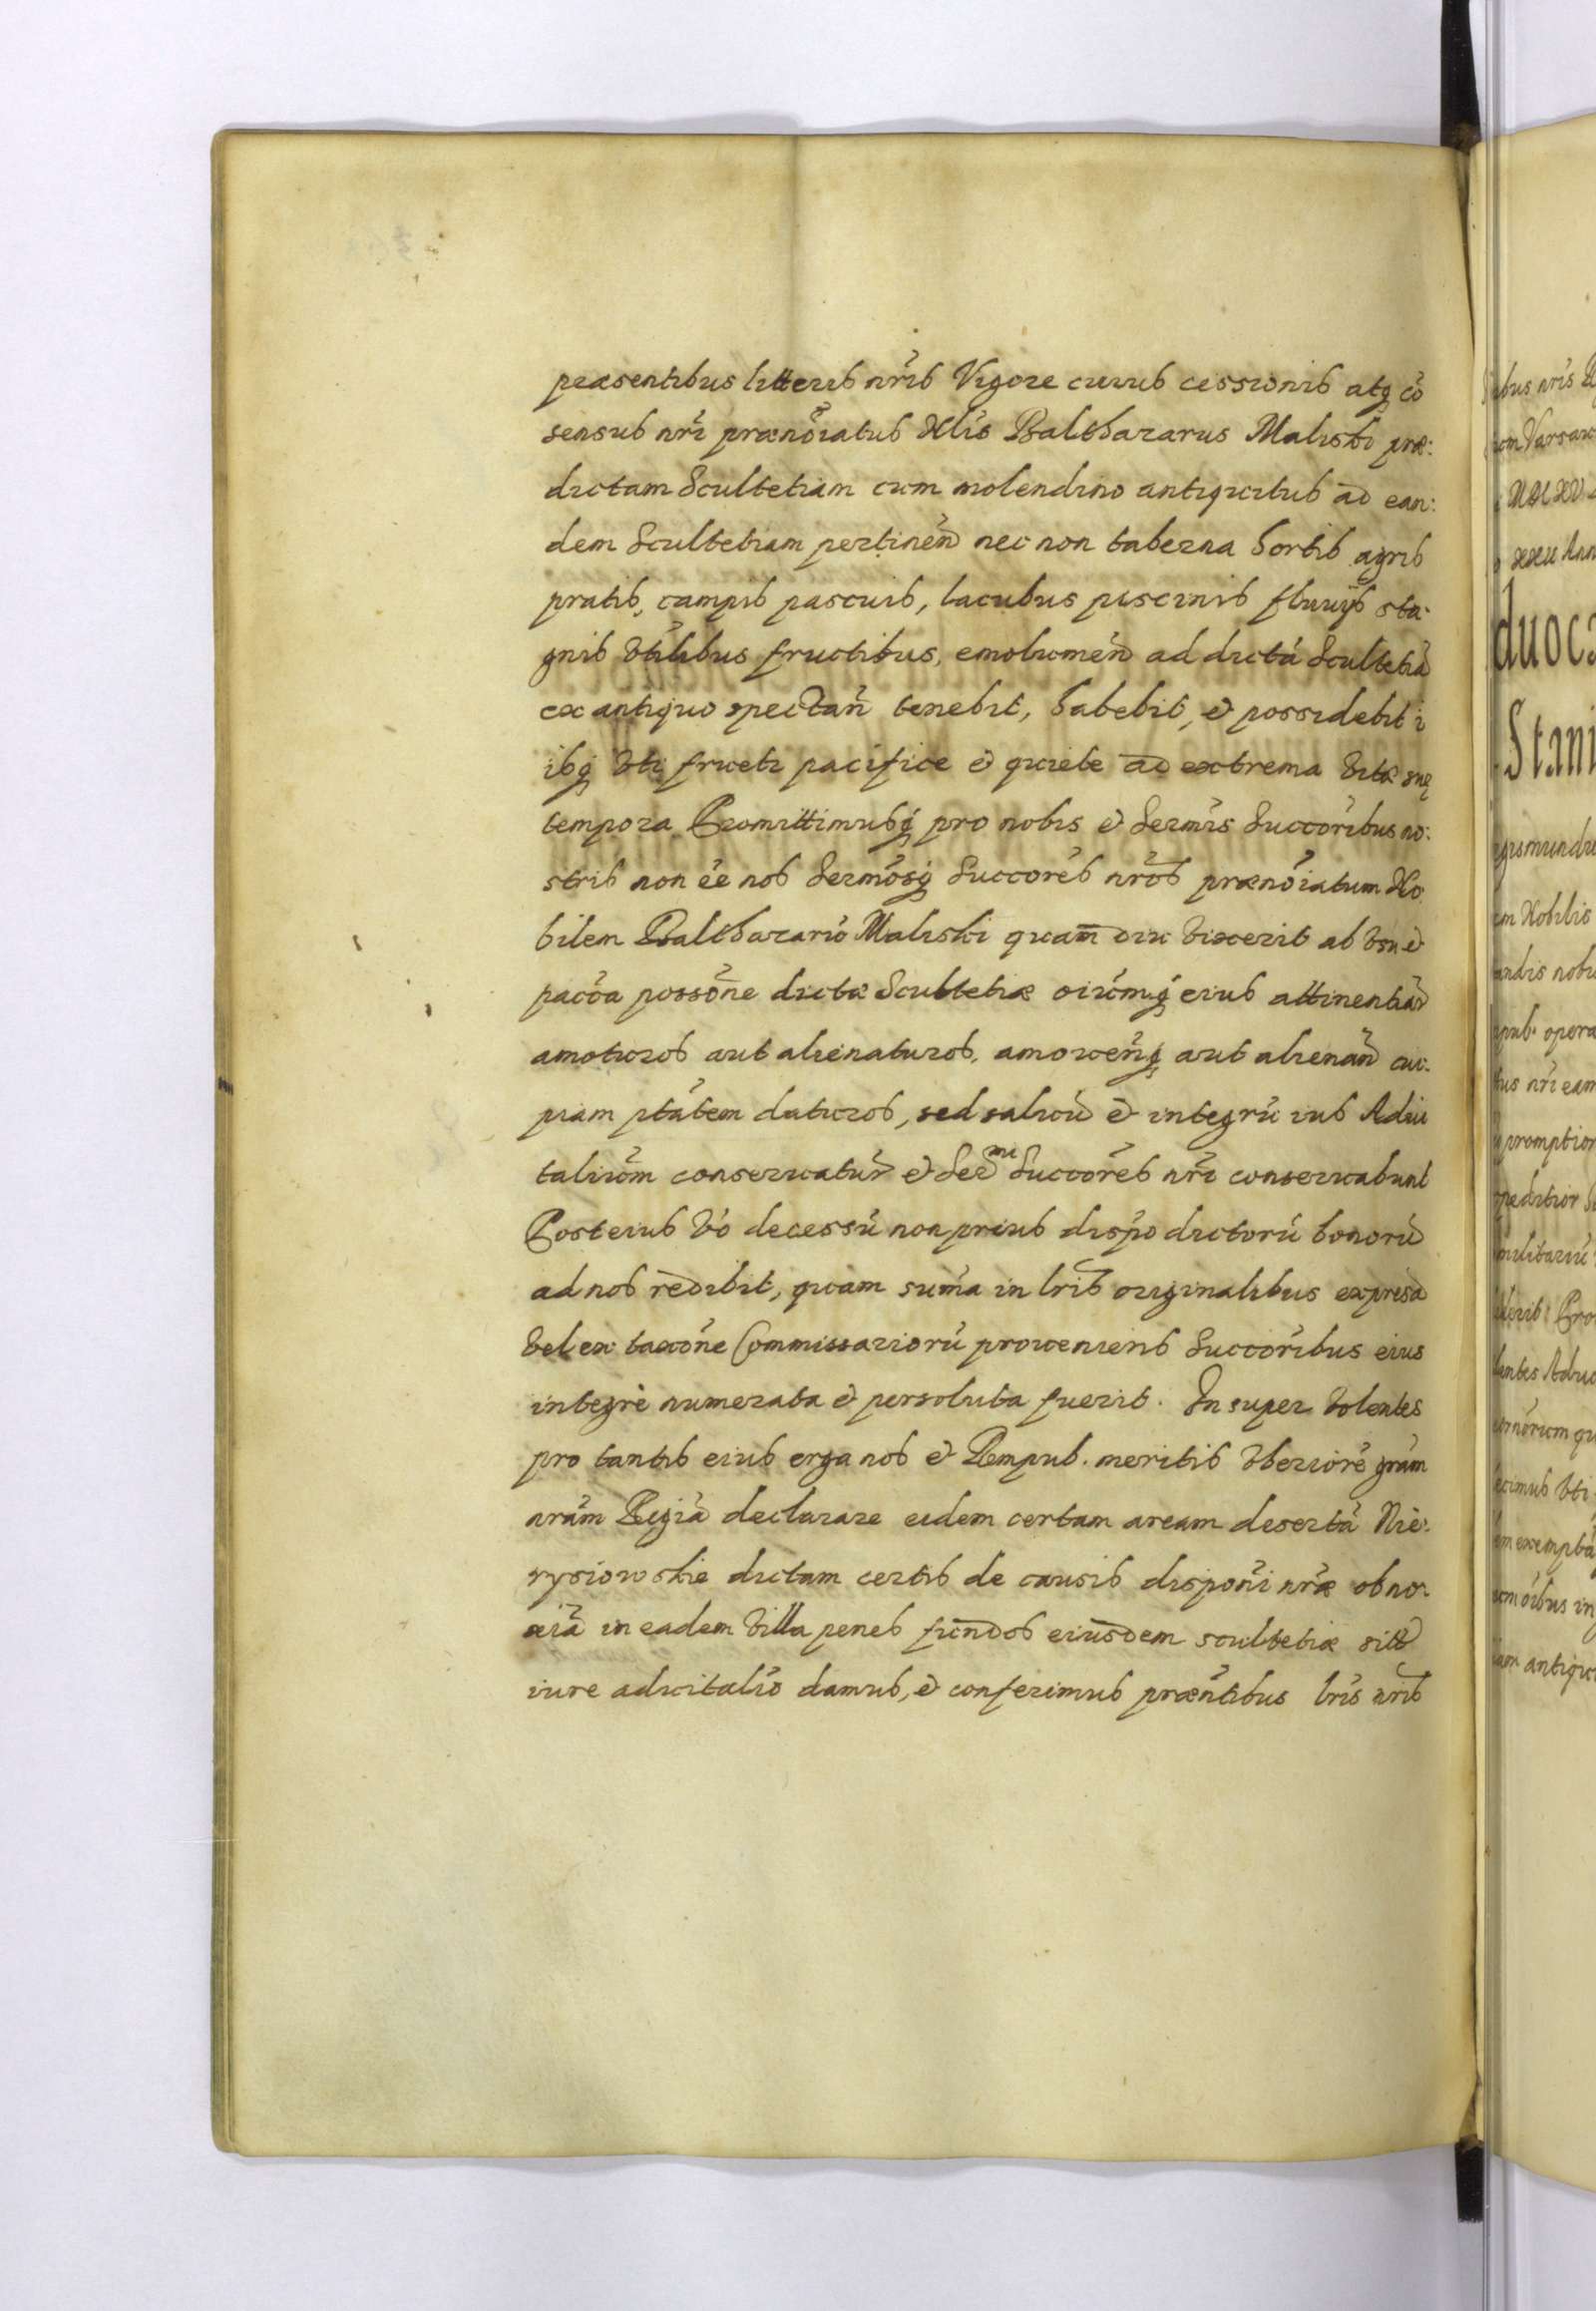 præsentibus litteris nr̃is Vigore cuius cessionis atq̨ cõ
sensus nr̃i prænõiatus Nlis Balthazarus Maliski præ:
dictam Scultetiam cum molendino antiquitus ad ean:
dem Scultetiam pertineñ nec non taberna hortis agris
pratis, campis pascuis, lacubus piscinis fluuijs sta:
gnis vtilibus fructibus, emolumeñ ad dictã Scultetiã
ex antiquo spectañ tenebit, habebit, et possidebit i
ibq̨ vti frueti pacifice et quiete ad extrema vitæ suę
tempora Promittimusq̨ pro nobis et Sermis Succoribus no:
stris non ẽe nos Sermosq̨ Succores nr̃os prænõiatum No
bilem Balthazarũ Maliski quam diu vixerit ab vsu et
paccõa possõne dictæ Scultetiæ oiũmq̨ eius attinentiaȓ
amoturos aut alienaturos, amoueñq̨ aut alienañ cui:
piam ptãtem daturos, sed saluũ et integrũ ius Adui
talium conseruatur et Sermi Succores nr̃i conseruabunt
Post eius vo decessũ non prius dispo dictorũ bonorũ
ad nos redibit, quam suma in lris originalibus expressa
vel ex taxõne Commissariorũ proueniens Succoribus eius
integrè numerata et persoluta fuerit. In super volentes
pro tantis eius erga nos et Rempub. meritis vberiorẽ gram
nram Regiã declarare eidem certam aream desertã Nie:
rysiowskie dictam certis de causis disponi nræ obno:
xiã in eadem villa penes fundos eiusdem scultetiæ sitã
iure aduitalĩo damus, et conferimus præntibus lris nris